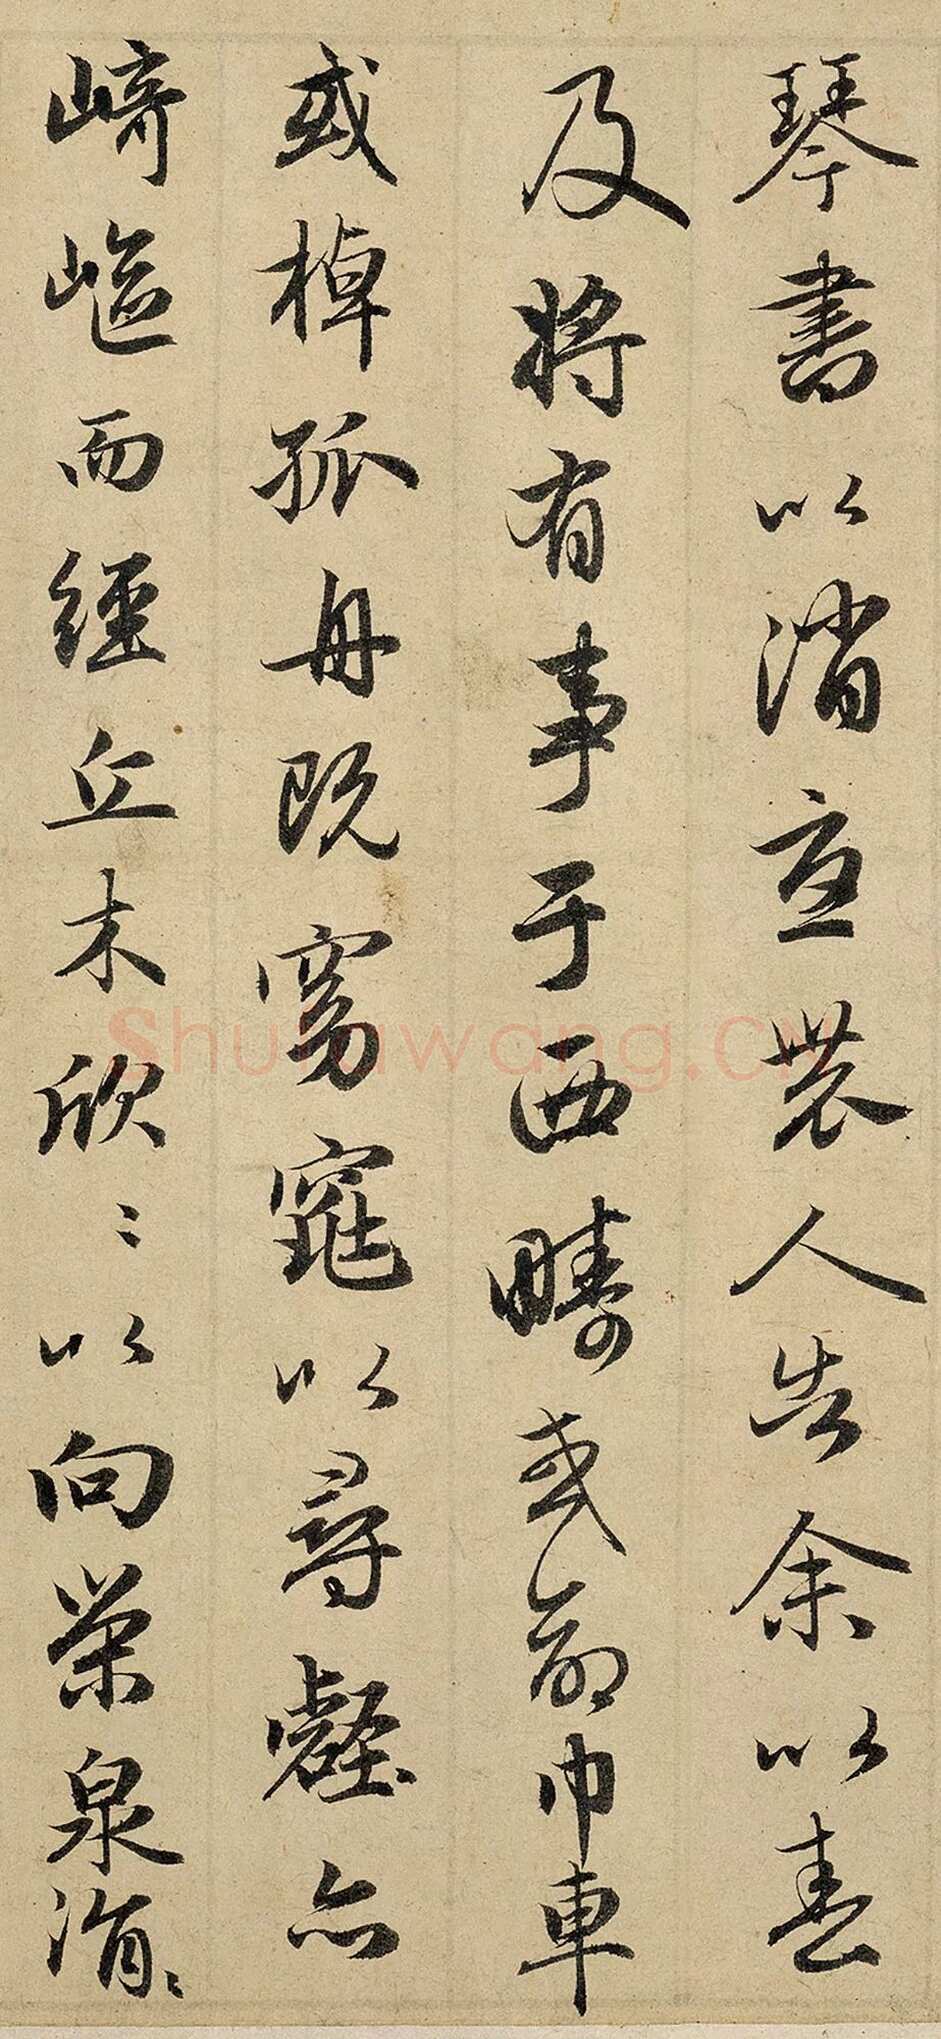 琴書以消憂農人告余以春
及將有事于西疇或命巾車
或棹孤舟既窈窕以尋壑亦
崎嶇而經丘木欣〻以向榮泉涓〻
Shufawang.cn